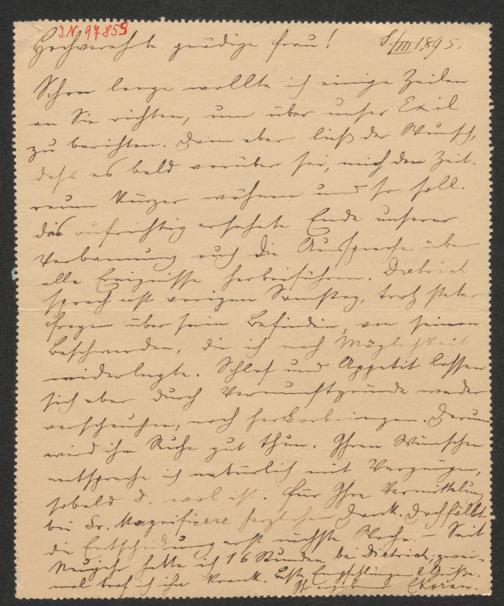 I.N. 97855
Hochverehrte gnädige Frau! 8./III 1895.
Schon lange wollte ich einige Zeilen
an Sie richten, um über unser Exil
zu berichten. Dann aber ließ der Wunsch,
daß es bald vorüber sei, mich den Zeit-
raum kürzer wähnen und so soll
das aufrichtig ersehnte Ende unserer
Verbannung auch die Aussprache über
alle Ereignisse herbeiführen. Dietrich
sprach erst vorigen Samstag, trotz steter
Fragen über sein Befinden, von seinen
Beschwerden, die ich nach Möglichkeit
widerlegte. Schlaf und Appetit lassen
sich aber durch Vernunftgründe weder
verscheuchen, noch hervorbringen. Darum
wird ihm Ruhe gut thun. Ihren Wünschen
entspreche ich natürlich mit Vergnügen,
sobald D. wohl ist. Für Ihre Vermittelung
bei Sr. Magnificenz herzlichen Dank. Doch fällt
die Entscheidung erst nächste Woche. – Seit
Neujahr hatte ich 16 Stunden bei Dietrich, zwei-
mal traf ich ihn krank. Beste Empfehlungen